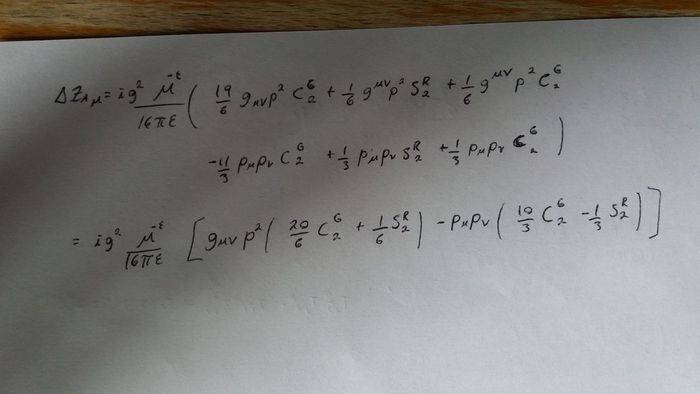 ΔZ_{Aμ} = ig² μ^{-ε}/16πε ( 19/6 g_{μν}p² C₂^G + 1/6 g^{μν}p² S₂^R + 1/6 g^{μν}p² C₂^G
-11/3 p_μp_ν C₂^G + 1/3 p_μp_ν S₂^R + 1/3 p_μp_ν C₂^G )
= ig² μ^{-ε}/16πε [ g_{μν}p² ( 20/6 C₂^G + 1/6 S₂^R ) - p_μp_ν ( 10/3 C₂^G - 1/3 S₂^R ) ]